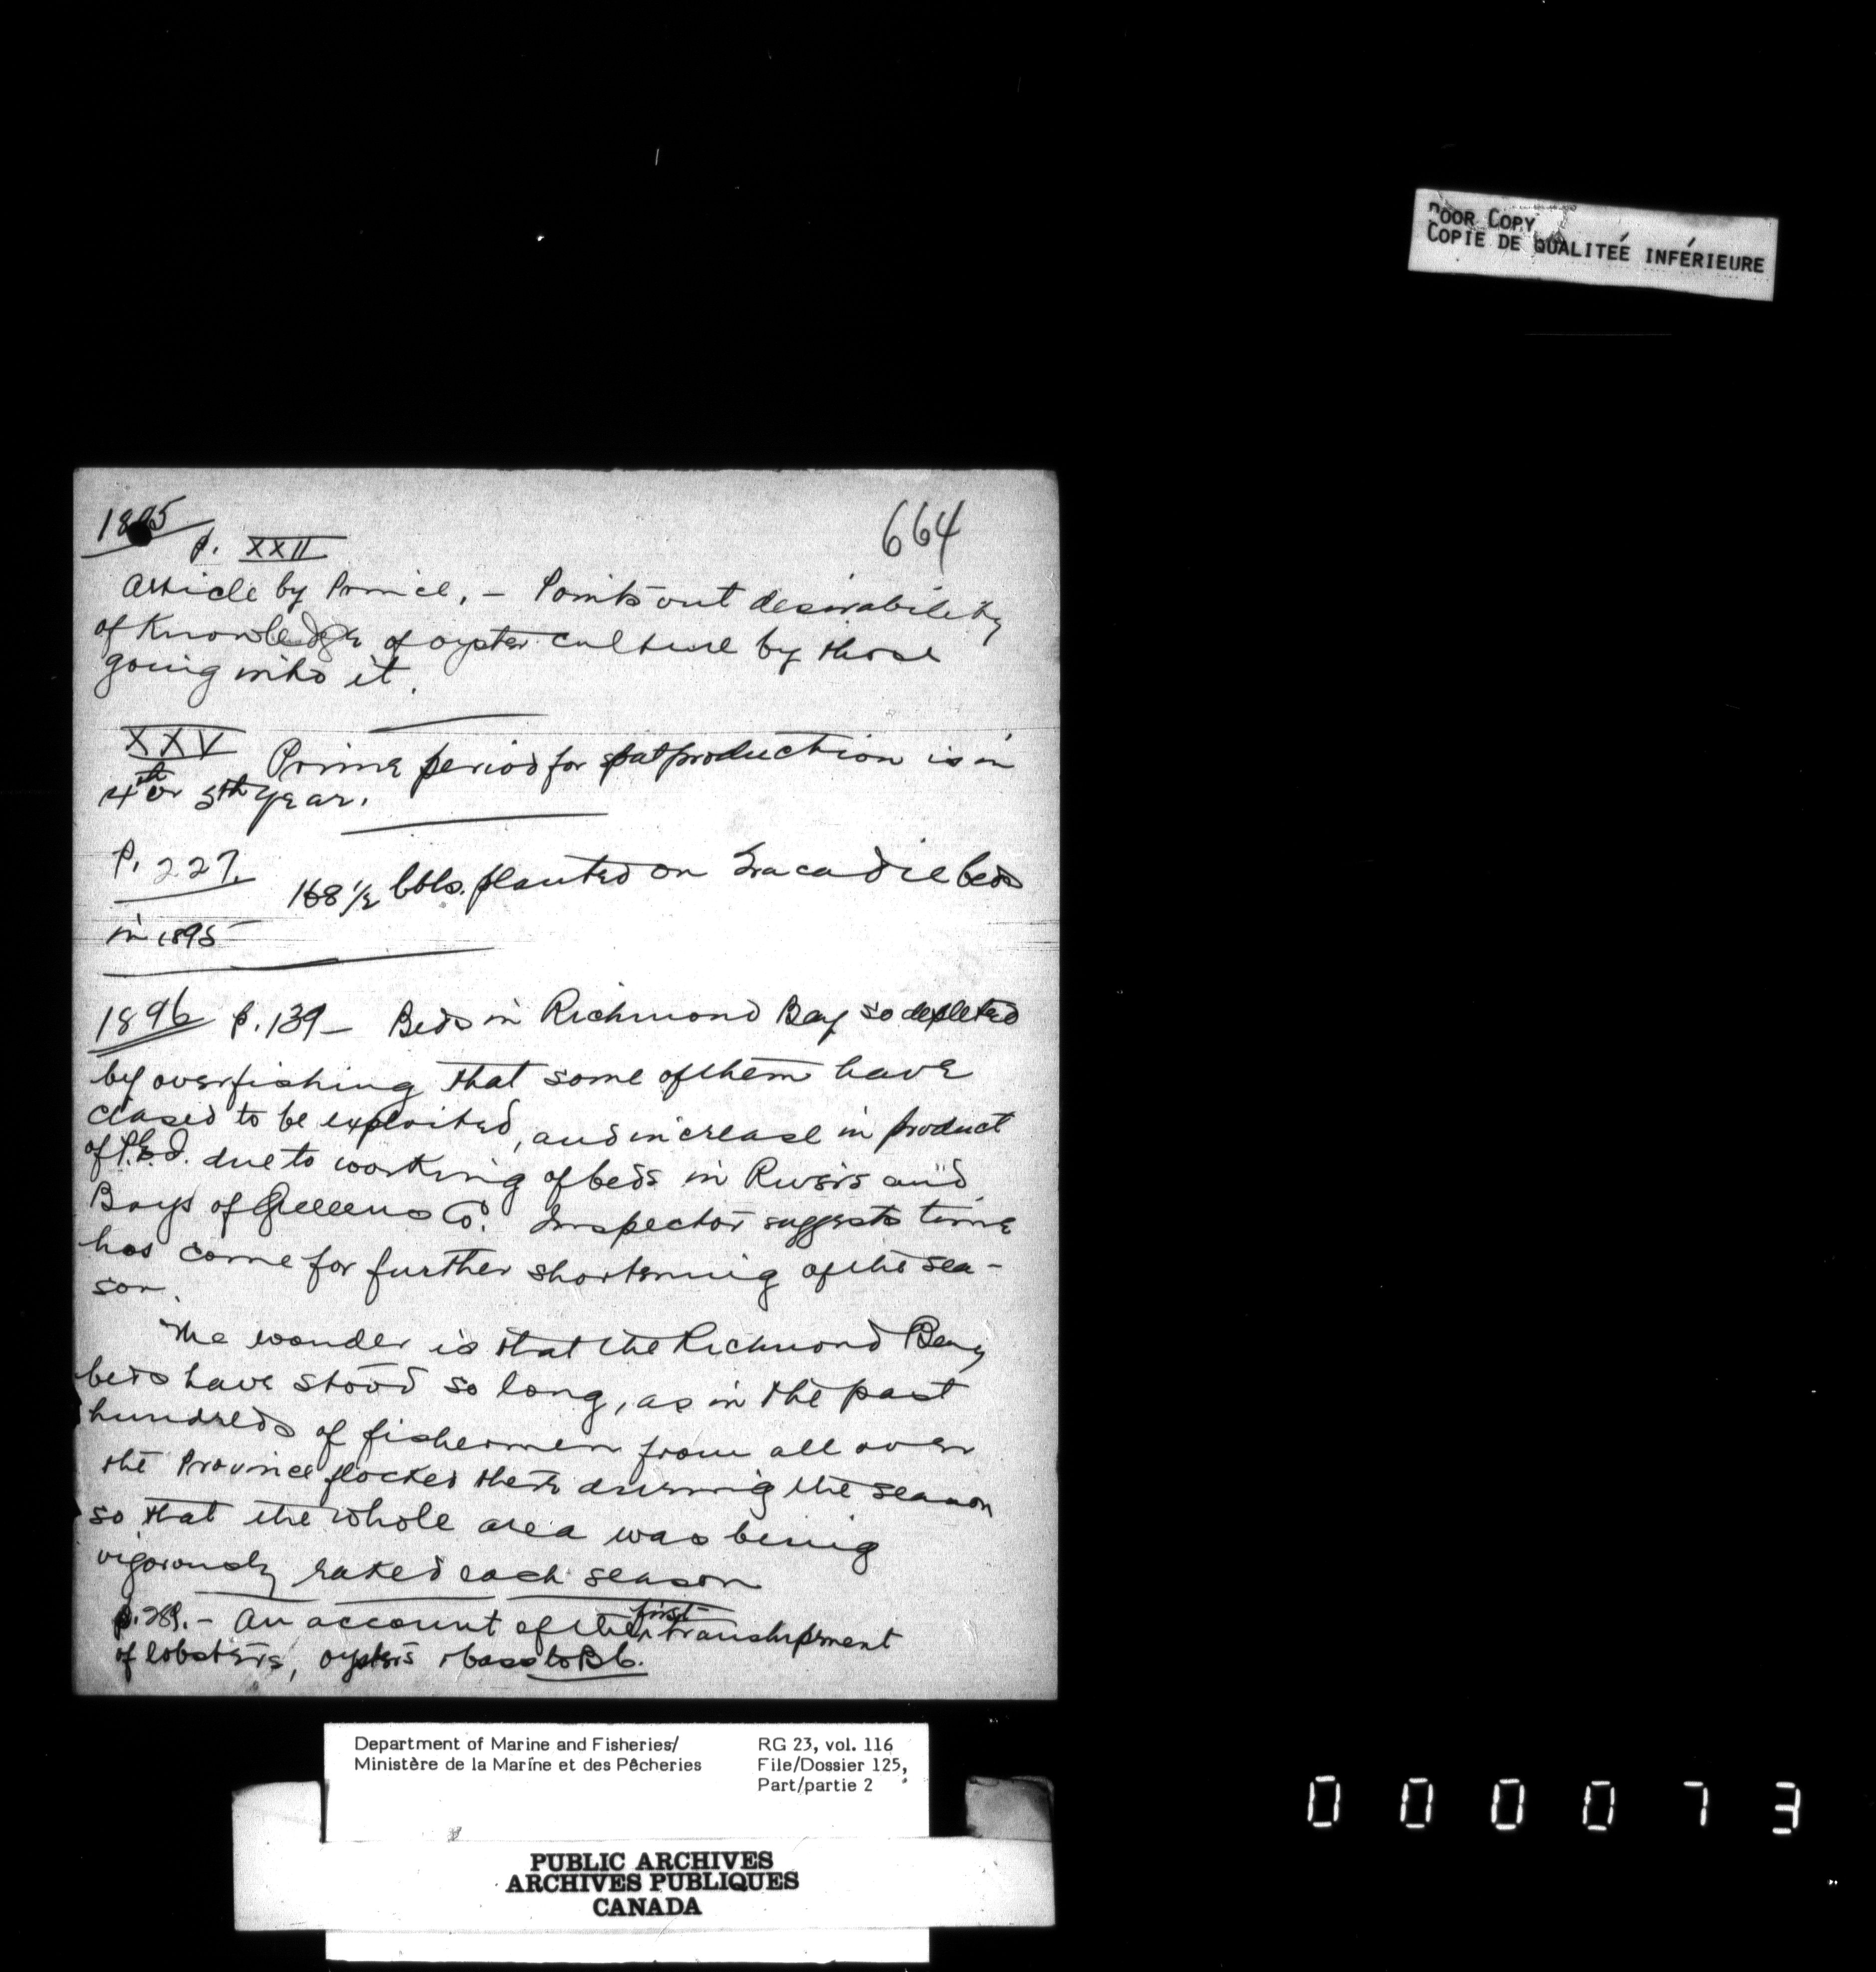 POOR COPY
COPIE DE QUALITEÉ INFÉRIEURE
1895
664
p. XXII
Article by Prince. - Points out desirability
of knowledge of oyster culture by those
going into it.
XXV Prime period for spat production is in
4th or 5th year.
P. 227.
168 1/2 bbls. planted on Tracadie beds
in 1895
1896 p. 139 - Beds in Richmond Bay so depleted
by overfishing that some of them have
ceased to be exploited, and increase in product
of P.E.I. due to working of beds in Rivers and
Bays of Queens Co. Inspector suggests time
has come for further shortening of the sea-
son.
The wonder is that the Richmond Bay
beds have stood so long, as in the past
hundreds of fishermen from all over
the Province flocked there during the season
so that the whole area was being
vigorously raked each season
p. 289. - An account of the first transhipment
of lobsters, oysters & bass to B.C.
Department of Marine and Fisheries/
Ministère de la Marine et des Pêcheries
RG 23, vol. 116
File/Dossier 125,
Part/partie 2
PUBLIC ARCHIVES
ARCHIVES PUBLIQUES
CANADA
000073